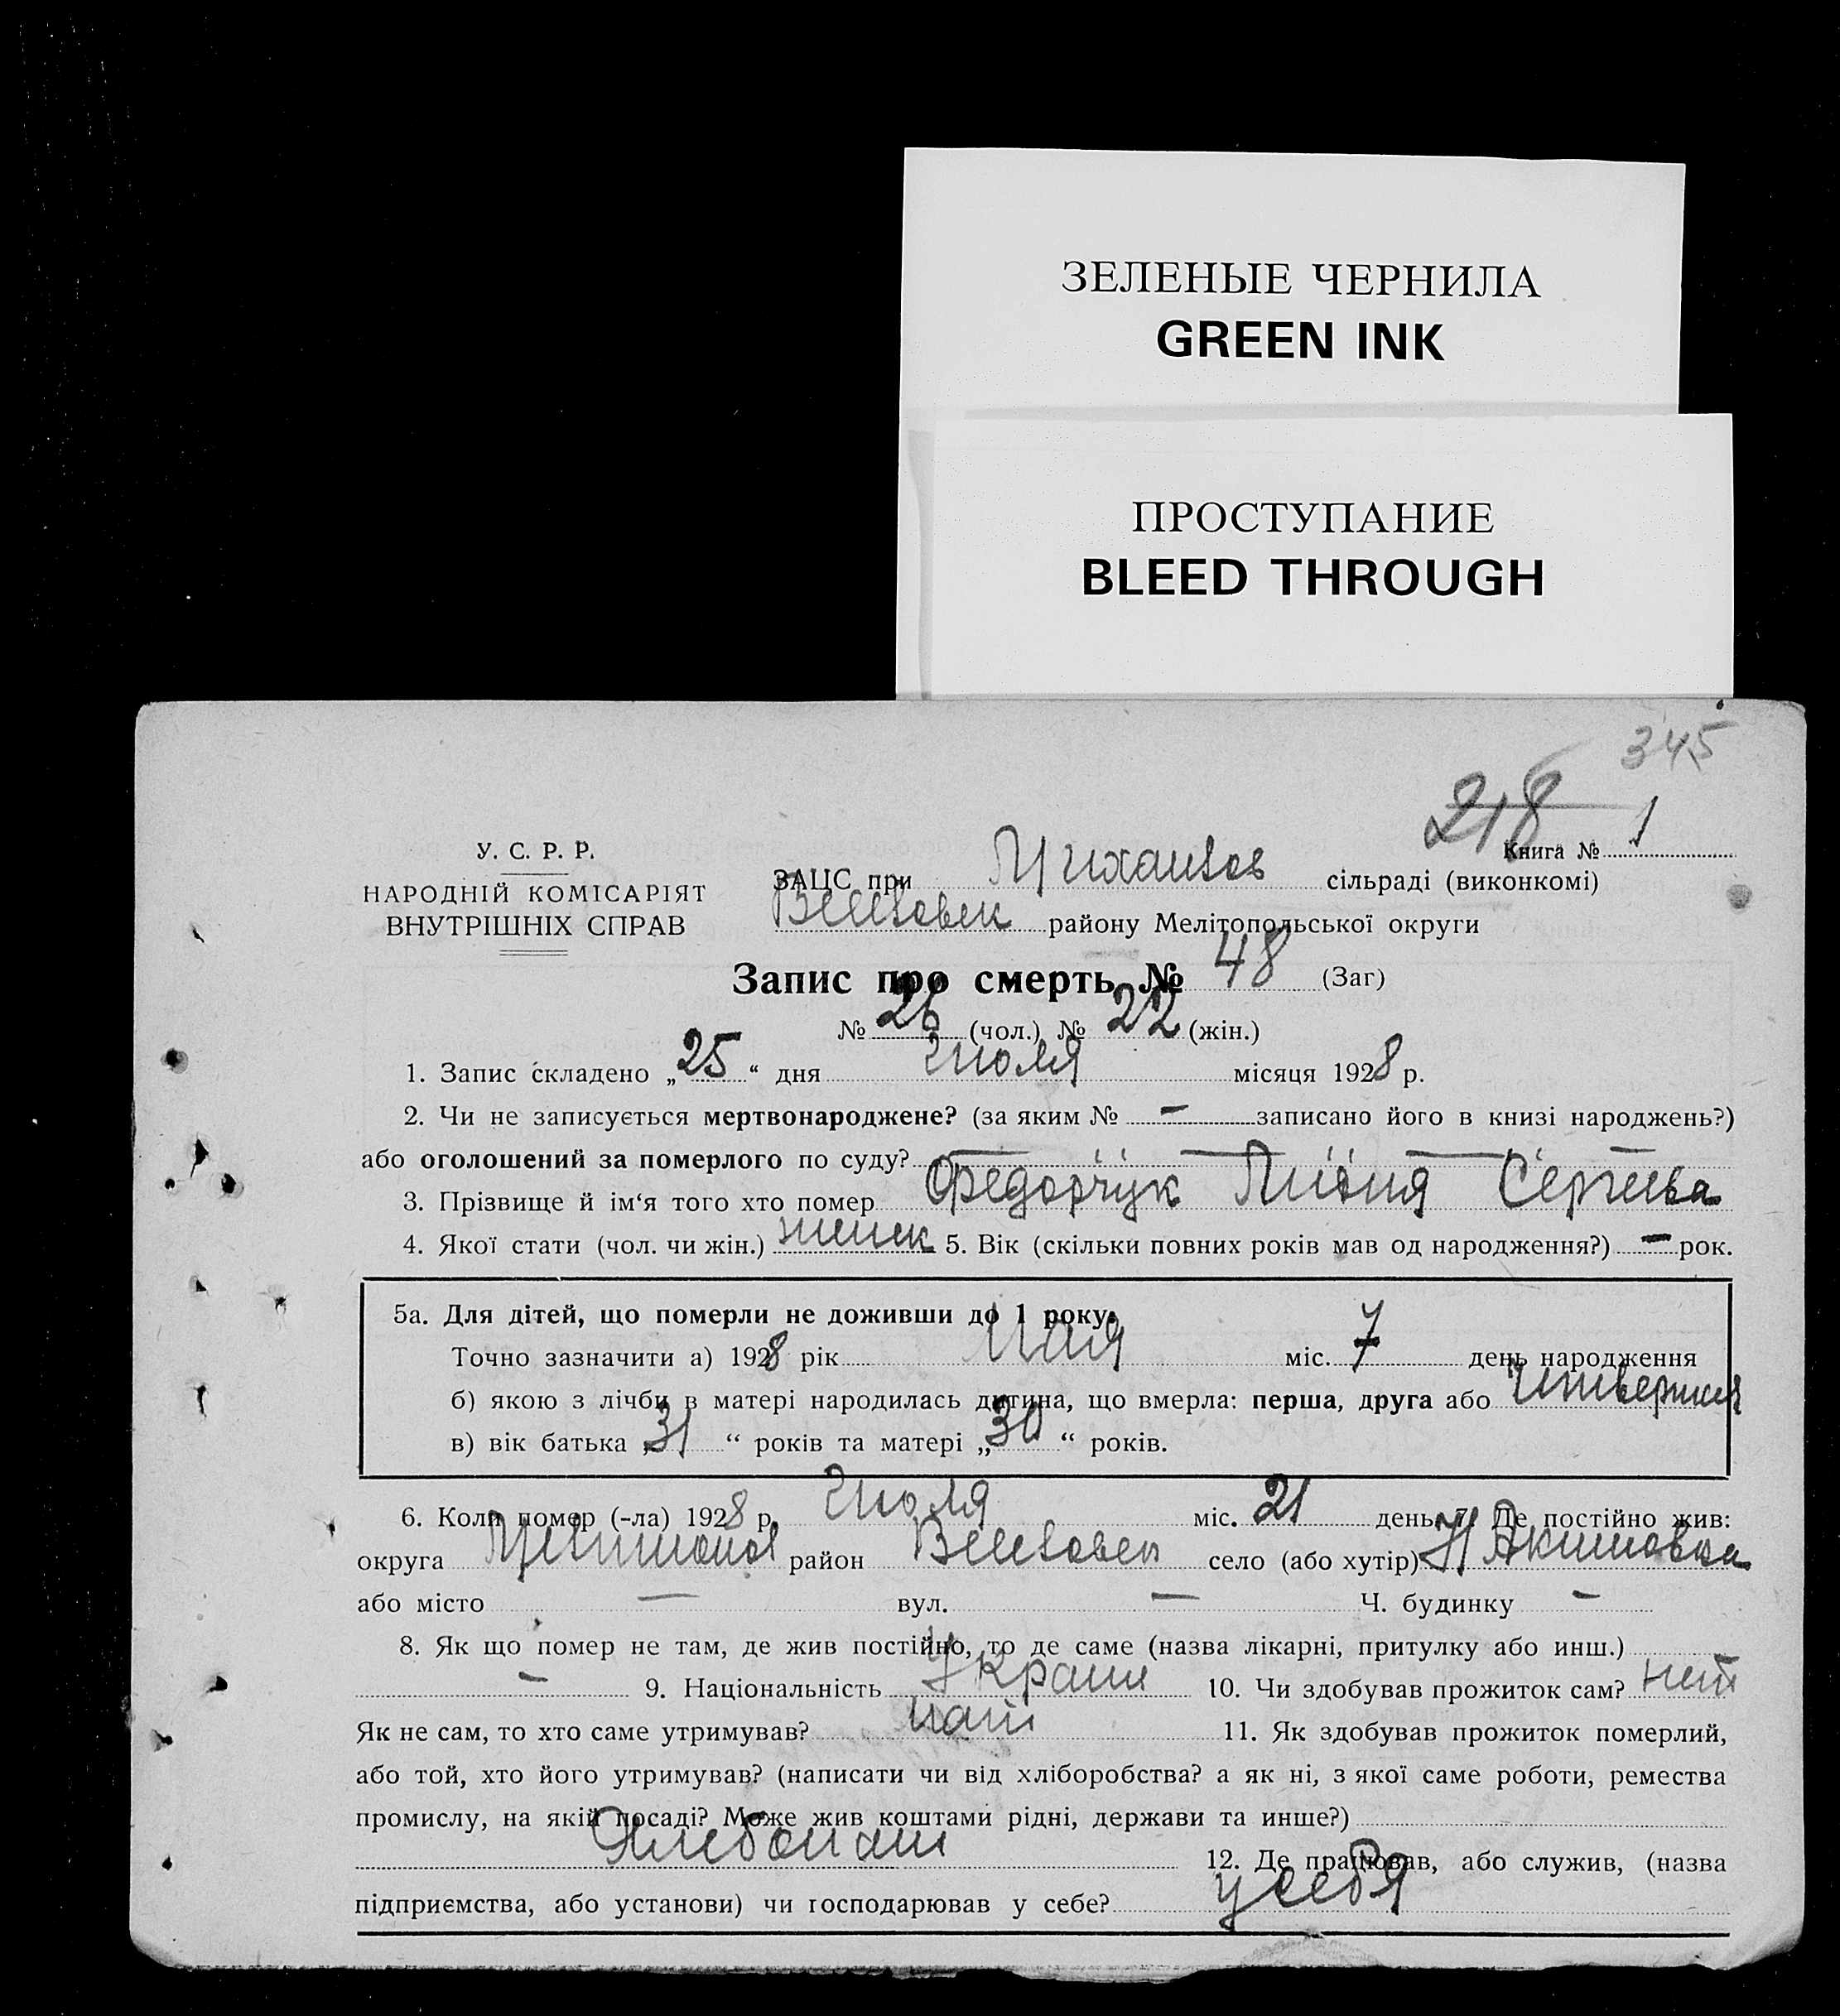 ЗЕЛЕНЫЕ ЧЕРНИЛА
GREEN INK
ПРОСТУПАНИЕ
BLEED THROUGH
345
218
Книга № 1
У. С. Р. Р.
НАРОДНІЙ КОМІСАРІЯТ
ВНУТРІШНІХ СПРАВ
ЗАЦС при сільраді (виконкомі)
району Мелітопольської округи
Запис про смерть № 48 (Заг)
№ 26 (чол.) № 22 (жін.)
1. Запис складено „25“ дня Июля місяця 1928 р.
2. Чи не записується мертвонароджене? (за яким № — записано його в книзі народжень?)
або оголошений за померлого по суду?
3. Прізвище й ім‘я того хто помер Федорчук Лидия Сергеева
4. Якої стати (чол. чи жін.) женск 5. Вік (скільки повних років мав од народження?) — рок.
5а. Для дітей, що померли не доживши до 1 року:
Точно зазначити а) 1928 рік Мая міс. 7 день народження
б) якою з лічби в матері народилась дитина, що вмерла: перша, друга або
в) вік батька „31“ років та матері „30“ років.
6. Коли помер (-ла) 1928 р. Июля міс. 21 день. 7. Де постійно жив:
округа район село (або хутір) Н Акимовка
або місто — вул. — Ч. будинку —
8. Як що помер не там, де жив постійно, то де саме (назва лікарні, притулку або инш.)
— 9. Національність Украин 10. Чи здобував прожиток сам? нет
Як не сам, то хто саме утримував? мат 11. Як здобував прожиток померлий,
або той, хто його утримував? (написати чи від хліборобства? а як ні, з якої саме роботи, ремества
промислу, на якій посаді? Може жив коштами рідні, держави та инше?)
Хлебопаш 12. Де працював, або служив, (назва
підприємства, або установи) чи господарював у себе? у себя